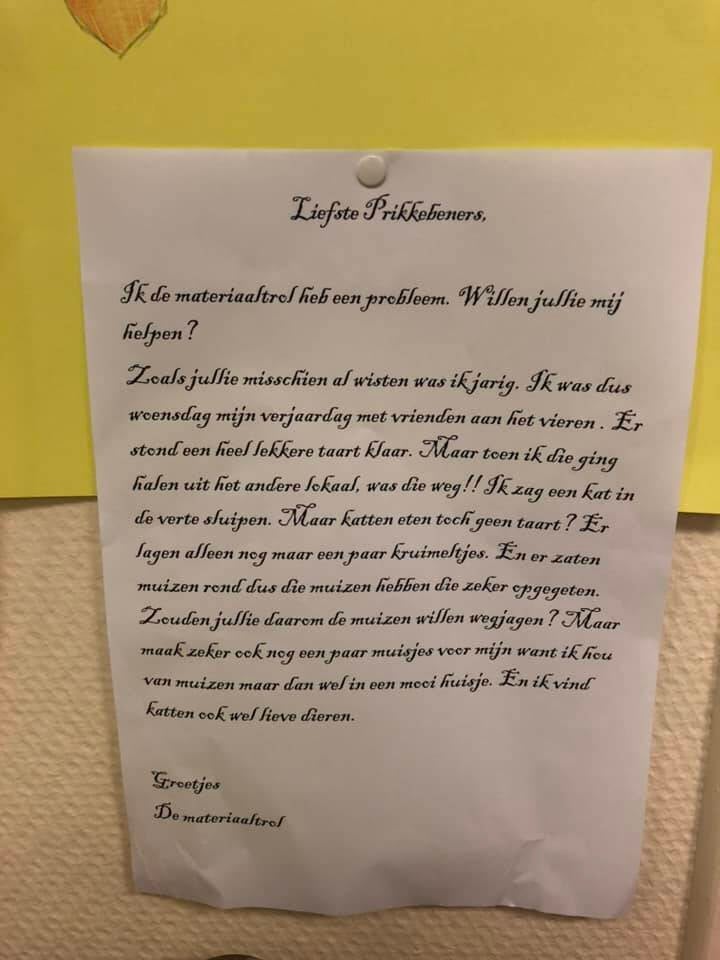 Liefste Prikkebeners,
Ik de materiaaltrol heb een probleem. Willen jullie mij
helpen?
Zoals jullie misschien al wisten was ik jarig. Ik was dus
woensdag mijn verjaardag met vrienden aan het vieren . Er
stond een heel lekkere taart klaar. Maar toen ik die ging
halen uit het andere lokaal, was die weg!! Ik zag een kat in
de verte sluipen. Maar katten eten toch geen taart? Er
lagen alleen nog maar een paar kruimeltjes. En er zaten
muizen rond dus die muizen hebben die zeker opgegeten.
Zouden jullie daarom de muizen willen wegjagen? Maar
maak zeker ook nog een paar muisjes voor mijn want ik hou
van muizen maar dan wel in een mooi huisje. En ik vind
katten ook wel lieve dieren.
Groetjes
De materiaaltrol